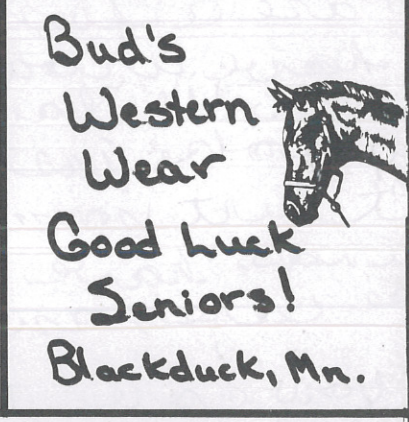 Bud's
Western
Wear
Good Luck
Seniors!
Blackduck, Mn.